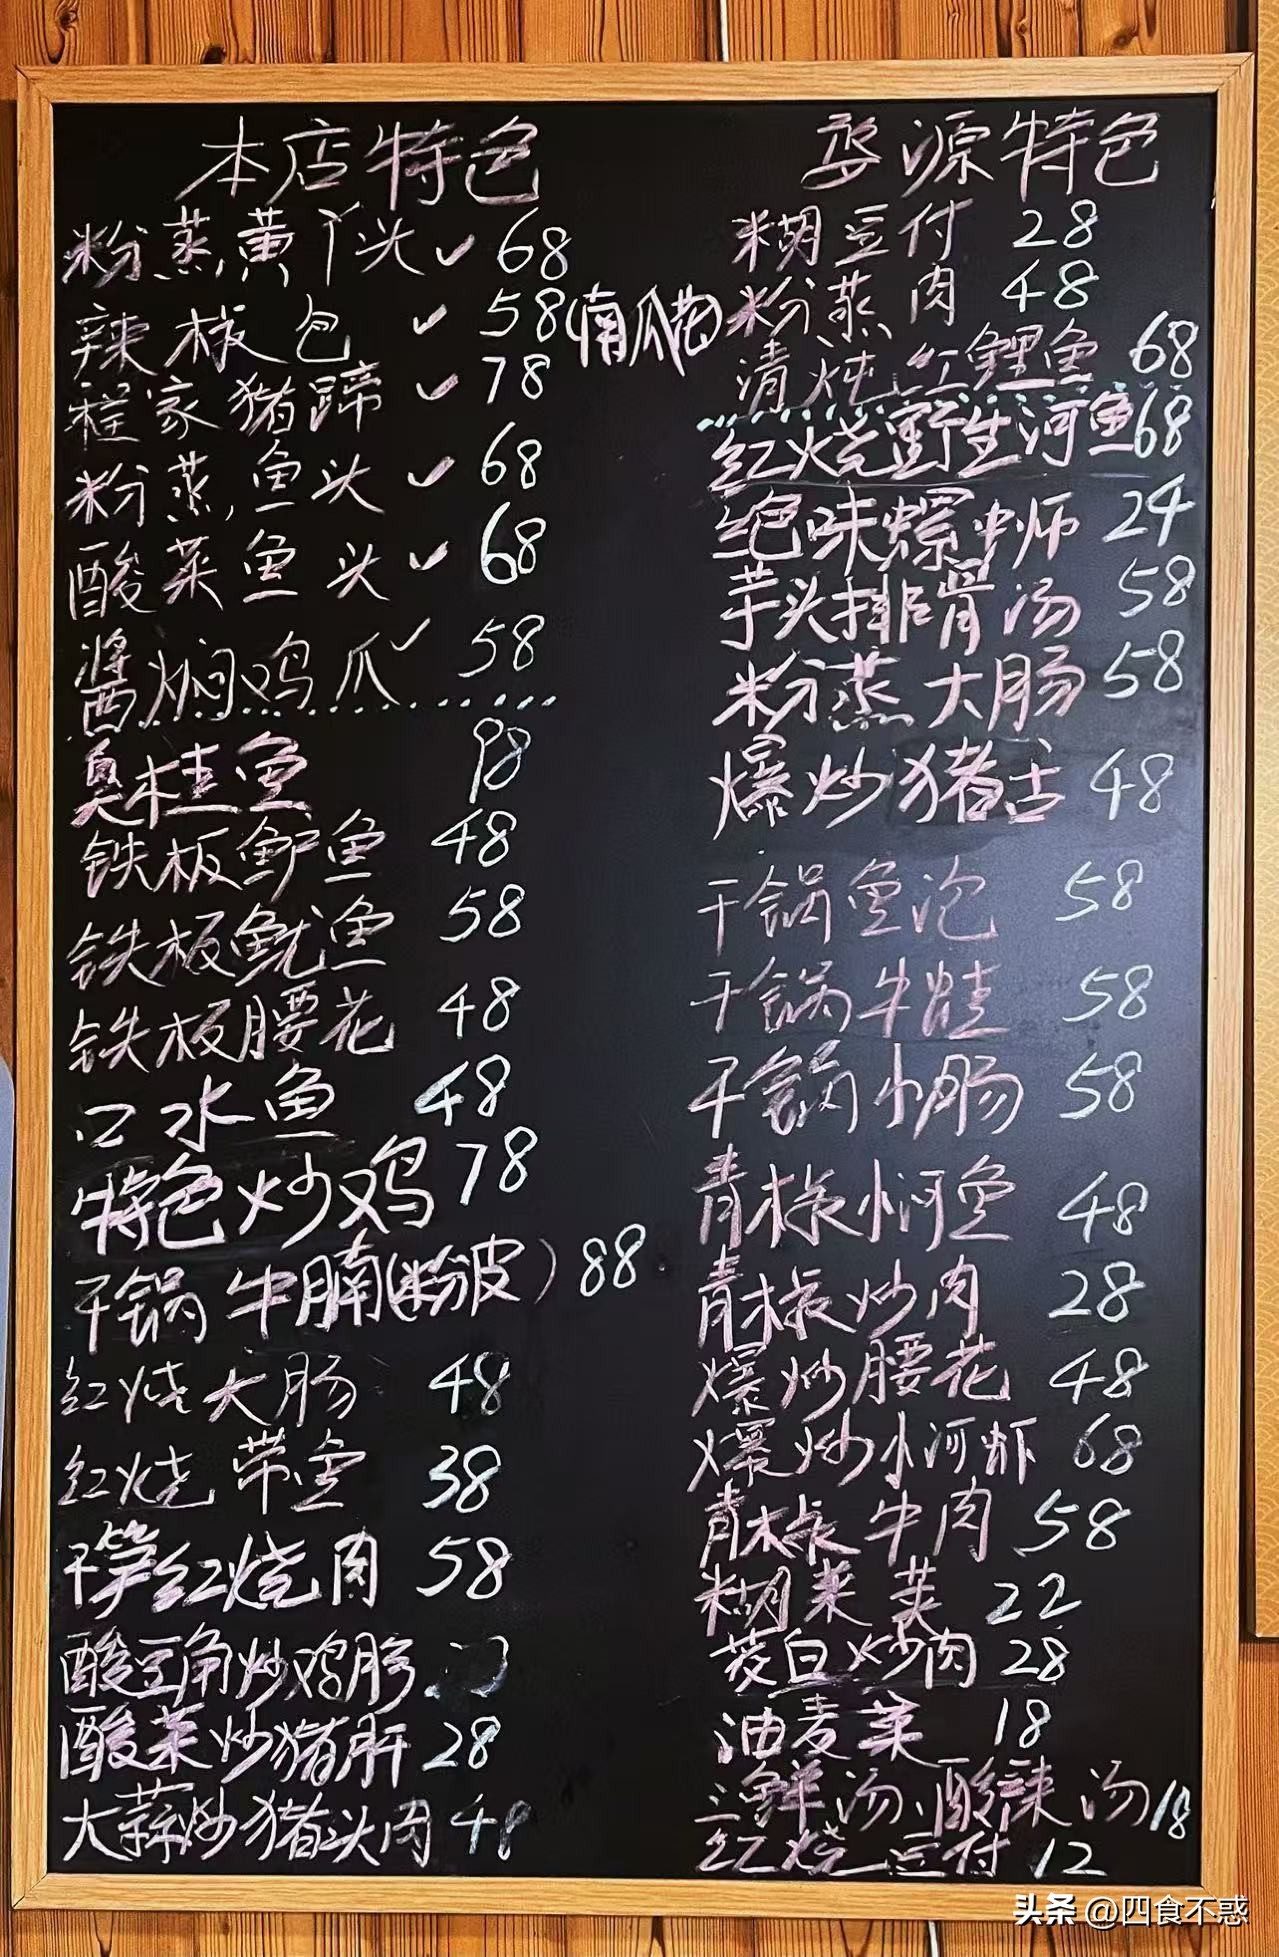 本店特色
粉蒸黄丫头✓ 68
辣椒包 ✓ 58(南瓜花)
程家猪蹄✓ 78
粉蒸鱼头✓ 68
酸菜鱼头✓ 68
酱焖鸡爪✓ 58
臭桂鱼 98
铁板鲈鱼 48
铁板鱿鱼 58
铁板腰花 48
口水鱼 48
特色炒鸡 78
干锅牛腩(粉皮) 88
红烧大肠 48
红烧带鱼 38
干笋红烧肉 58
酸豆角炒鸡胗
酸菜炒猪肝 28
大蒜炒猪头肉 48
婺源特色
糊豆付 28
粉蒸肉 48
清炖红鲤鱼 68
红烧野生河鱼 68
绝味螺蛳 24
芋头排骨汤 58
粉蒸大肠 58
爆炒猪舌 48
干锅鱼泡 58
干锅牛蛙 58
干锅小肠 58
青椒焖鱼 48
青椒炒肉 28
爆炒腰花 48
爆炒小河虾 68
青椒牛肉 58
糊菜羹 22
茭白炒肉 28
油麦菜 18
三鲜汤、酸辣汤 18
红烧豆付 12
头条 @四食不惑